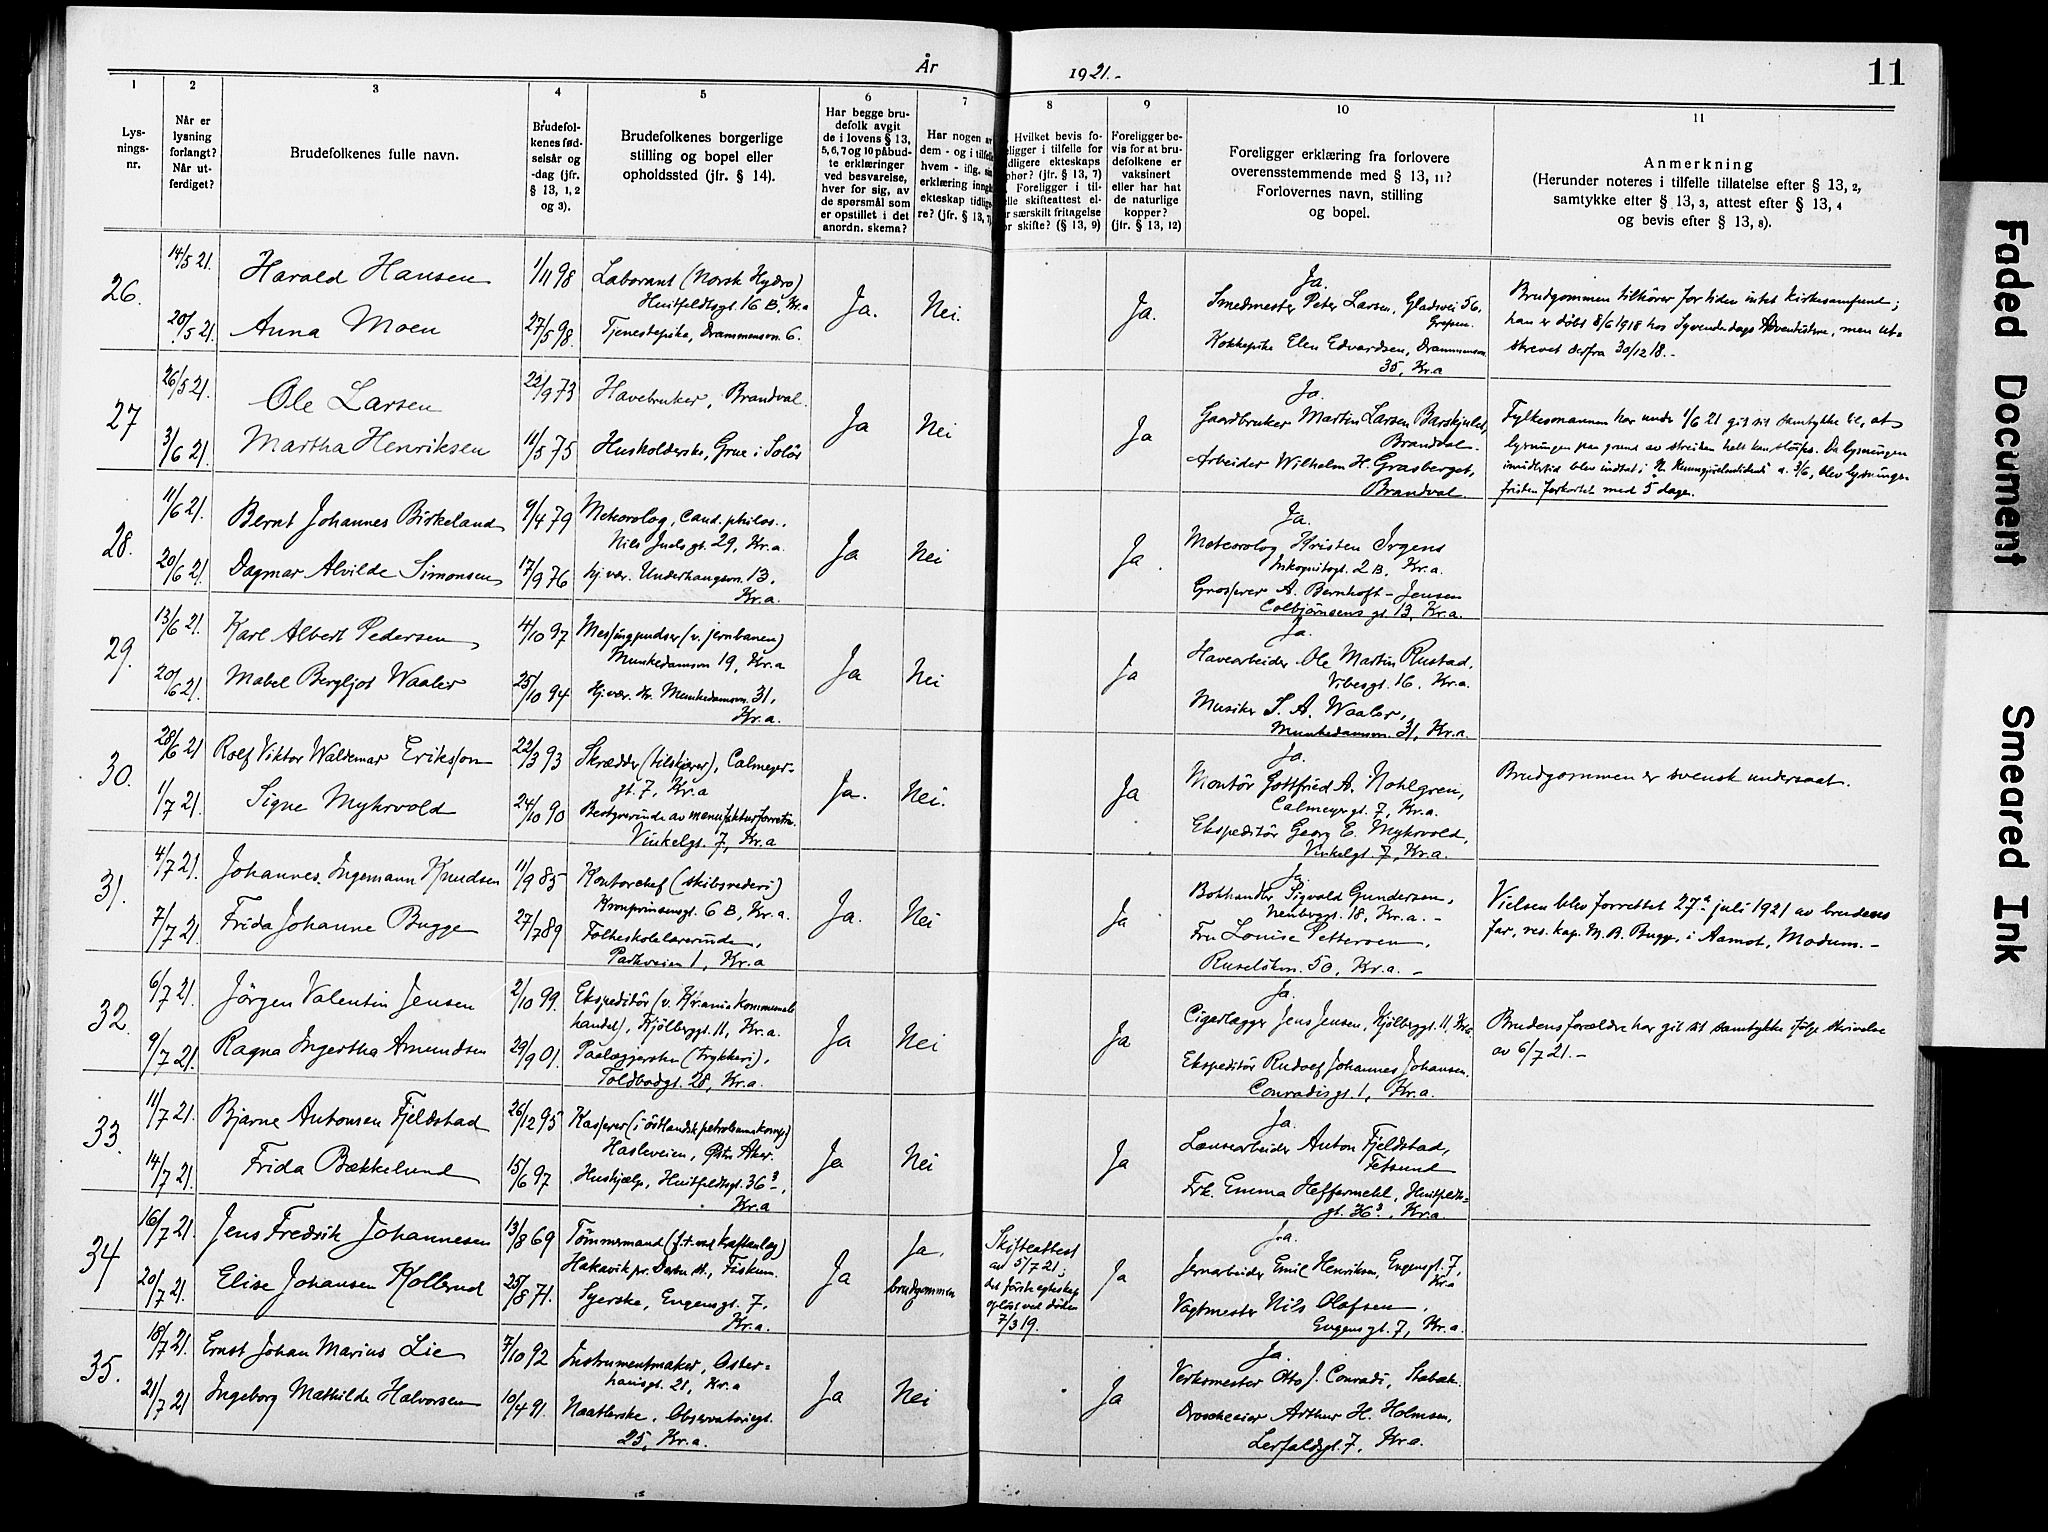 År 1921.-
11
1
2
3
4
5
6
7
8
9
10
11
Lys-
nings-
nr.
Når er
lysning
forlangt?
Når ut-
ferdiget?
Brudefolkenes fulle navn.
Brudefol-
kenes fød-
selsår og
-dag (jfr.
§ 13, 1, 2
og 3).
Brudefolkenes borgerlige
stilling og bopel eller
opholdssted (jfr. § 14).
Har begge bru-
defolk avgit
de i lovens § 13,
5, 6, 7 og 10 påbud-
te erklæringer
ved besvarelse,
hver for sig, av
de spørsmål som
er opstillet i det
anordn. skema?
Har nogen av
dem - og i tilfelle
hvem - iflg. sin
erklæring inngått
ekteskap tidlige-
re? (jfr. § 13, 7)
Hvilket bevis fo-
religger i tilfelle for
tidligere ekteskaps
ophør? (jfr. § 13, 7)
Foreligger i til-
felle skifteattest el-
ler særskilt fritagelse
for skifte? (§ 13, 9)
Foreligger be-
vis for at bru-
defolkene er
vaksinert
eller har hat
de naturlige
kopper?
(jfr. § 13, 12)
Foreligger erklæring fra forlovere
overensstemmende med § 13, 11?
Forlovernes navn, stilling
og bopel.
Anmerkning
(Herunder noteres i tilfelle tillatelse efter § 13, 2,
samtykke efter § 13, 3, attest efter § 13, 4
og bevis efter § 13, 8).
26.
14/5 21.
Harald Hansen
1/11 98
Laborant (Norsk Hydro)
Huitfeldtsgt. 16 B, Kr.a
20/5 21.
Anna Moen
27/5 98.
Tjenestepike, Drammensvn. 6.
Ja.
Nei.
Ja.
Ja.
Smedmester Peter Larsen, Gladsvei 56,
Grefsen.
Kokkepike Elen Edvardsen, Drammensvn.
35, Kr.a
Brudgommen tilhører for tiden intet kirkesamfund;
han er døbt 8/6 1918 hos Syvendedags Adventistene, men ut-
skrevet derfra 30/12 18.-
27
26/5 21.
Ole Larsen
22/9 73
Havebruker, Brandval.
3/6 21.
Martha Henriksen
11/5 75
Husholderske, Grue i Solör
Ja
Nei
Ja
Ja.
Gaardbruker Martin Larsen Barskjulet,
Brandval.
Arbeider Wilhelm H. Grasberget,
Brandval
Fylkesmannen har under 1/6 21 git sit samtykke til, at
lysningen paa grund av streiken helt kan slöifes. Da lysningen
imidlertid blev indtat i N. Kunngjörelsestidende a. 3/6, blev lysnings-
fristen forkortet med 5 dage.
28.
11/6 21.
Bernt Johannes Birkeland
9/4 79
Meteorolog, cand. philos.,
Nils Juels gt. 29, Kr.a.
20/6 21.
Dagmar Alvilde Simonsen
17/9 76
Hj. vær. Underhaugsvn. 13,
Kr.a.
Ja
Nei
Ja.
Ja.
Meteorolog Kristen Irgens
Inkognitogt. 2 B, Kr.a.
Grosserer A. Bernhoft-Jensen
Colbjörnsens gt. 13, Kr.a.
29.
13/6 21.
Karl Albert Pedersen
4/10 97
Messingpudser (v. jernbanen)
Munkedamsvn 19, Kr.a
20/6 21.
Mabel Bergljot Waaler
25/10 94
Hj. vær. Munkedamsvn. 31,
Kr.a.
Ja
Nei
Ja
Ja.
Havearbeider Ole Martin Rustad,
Vibesgt. 16, Kr.a.
Musiker S. A. Waaler,
Munkedamsvn. 31, Kr.a.
30.
28/6 21
Rolf Viktor Waldemar Eriksson
22/3 93
Skrædder (tilskjærer), Calmeyer-
gt. 7, Kr.a
1/7 21.
Signe Myhrvold
24/10 90
Bestyrerinde av manufakturforretn.
Vinkelgt. 7, Kr.a
Ja.
Nei.
Ja
Ja.
Montör Gottfried A. Nohlgren,
Calmeyergt. 7, Kr.a.
Ekspeditör Georg E. Myhrvold,
Vinkelgt. 7, Kr.a.
Brudgommen er svensk undersaat.
31.
4/7 21.
Johannes Ingemann Knudsen
11/9 85
Kontorchef (skibsrederi)
Kronprinsensgt. 6 B, Kr.a.
7/7 21.
Frida Johanne Bugge
27/7 89
Folkeskolelærerinde,
Parkveien 1, Kr.a
Ja.
Nei
Ja
Ja.
Bokhandler Sigvald Gundersen,
Neuberggt. 18, Kr.a.-
Fru Louise Petterøen,
Ruselökvn. 50, Kr.a.-
Vielsen blev forrettet 27de juli 1921 av brudens
far, res. kap. M. B. Bugge, i Aamot, Modum.-
32.
6/7 21.
Jörgen Valentin Jensen
2/10 99.
Ekspeditör (v. Kr.ania kommunale
handel), Kjölberggt. 11, Kr.a.
9/7 21.
Ragna Ingertha Amundsen
29/9 01.
Paalæggerske (trykkeri),
Toldbodgt. 28, Kr.a.
Ja
Nei
Ja
Ja.
Cigarlægger Jens Jensen, Kjölberggt. 11, Kr.a.
Ekspeditör Rudolf Johannes Johansen,
Conradisgt. 1, Kr.a.
Brudens forældre har git sit samtykke ifölge skrivelse
av 6/7 21.-
33.
11/7 21.
Bjarne Antonsen Fjeldstad
26/12 95
Kasserer (i östlandsk petroleumskomp.)
Hasleveien, Östre Aker.
14/7 21.
Frida Bækkelund
15/6 97
Hushjælp, Huitfeldtsgt. 36³,
Kr.a
Ja
Nei
Ja
Ja.
Lensearbeider Anton Fjeldstad,
Fetsund
Frk. Emma Heffermehl, Huitfeldts-
gt. 36³, Kr.a.
34
16/7 21.
Jens Fredrik Johannesen
13/8 69
Tömmermand (f.t. ved kraftanlæg)
Hakavik pr. Darbu st., Fiskum.
20/7 21.
Elise Johansen Kollerud
25/8 71.
Syerske, Eugensgt. 7,
Kr.a.
Ja
Ja,
brudgommen
Skifteattest
av 5/7 21;
det første egteskap
oplöst ved döden
7/3 19.
Ja
Ja.
Jernarbeider Emil Henriksen, Eugensgt. 7,
Kr.a
Vagtmester Nils Olafsen,
Eugensgt. 7, Kr.a.
35.
18/7 21.
Ernst Johan Marius Lie
7/10 92
Instrumentmaker, Oster-
hausgt. 21, Kr.a
21/7 21
Ingeborg Mathilde Halvorsen
10/4 91.
Naatlerske, Observatoriegt.
25, Kr.a.
Ja
Nei
Ja
Ja.
Verksmester Otto J. Conradi, Stabæk.
Droscheeier Arthur H. Holmsen,
Lerfaldsgt. 7, Kr.a.
Faded Document
Smeared Ink